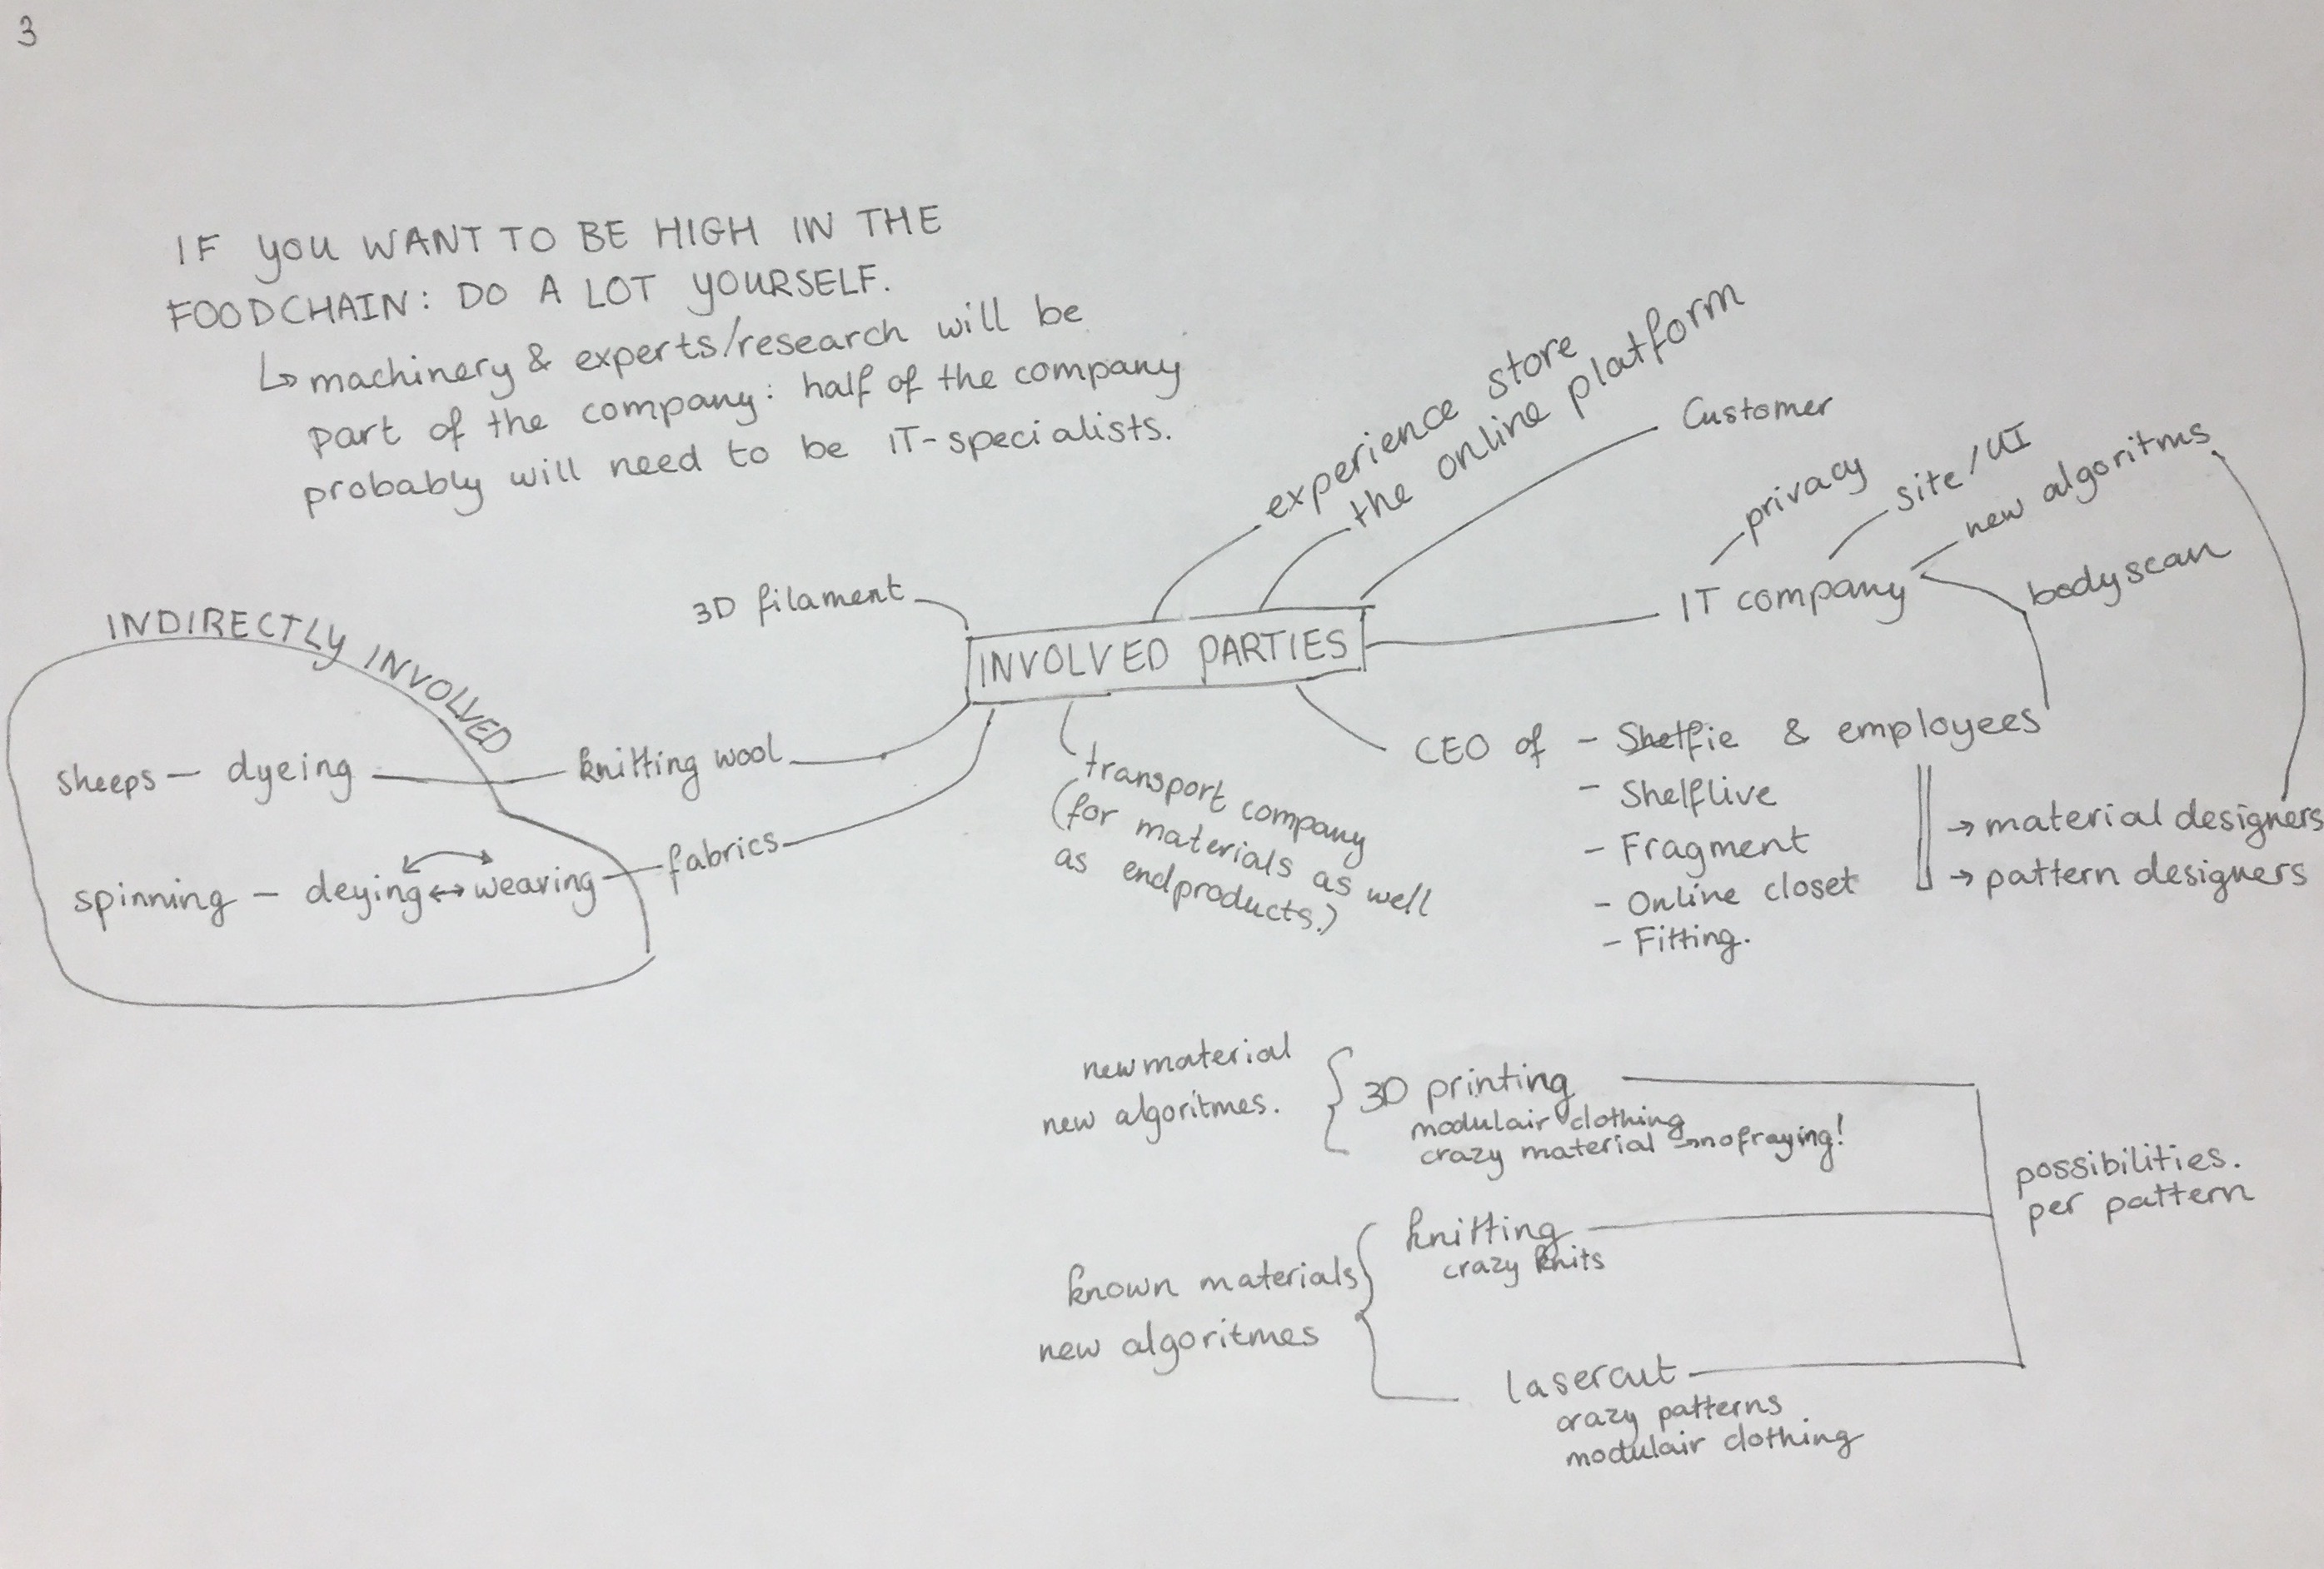 3
IF YOU WANT TO BE HIGH IN THE
FOODCHAIN: DO A LOT YOURSELF.
↳ machinery & experts/research will be
part of the company: half of the company
probably will need to be IT-specialists.
experience store
the online platform
Customer
privacy
site/UI
new algoritms
IT company
bodyscan
3D filament
INVOLVED PARTIES
INDIRECTLY INVOLVED
sheeps — dyeing — knitting wool
spinning — deying ↔ weaving — fabrics
transport company
(for materials as well
as endproducts.)
CEO of - Shelfie & employees
- Shelflive
- Fragment
- Online closet
- Fitting.
→ material designers
→ pattern designers
new material
new algoritmes.
3D printing
modulair clothing
crazy material → no fraying!
known materials
new algoritmes
knitting
crazy knits
lasercut
crazy patterns
modulair clothing
possibilities.
per pattern